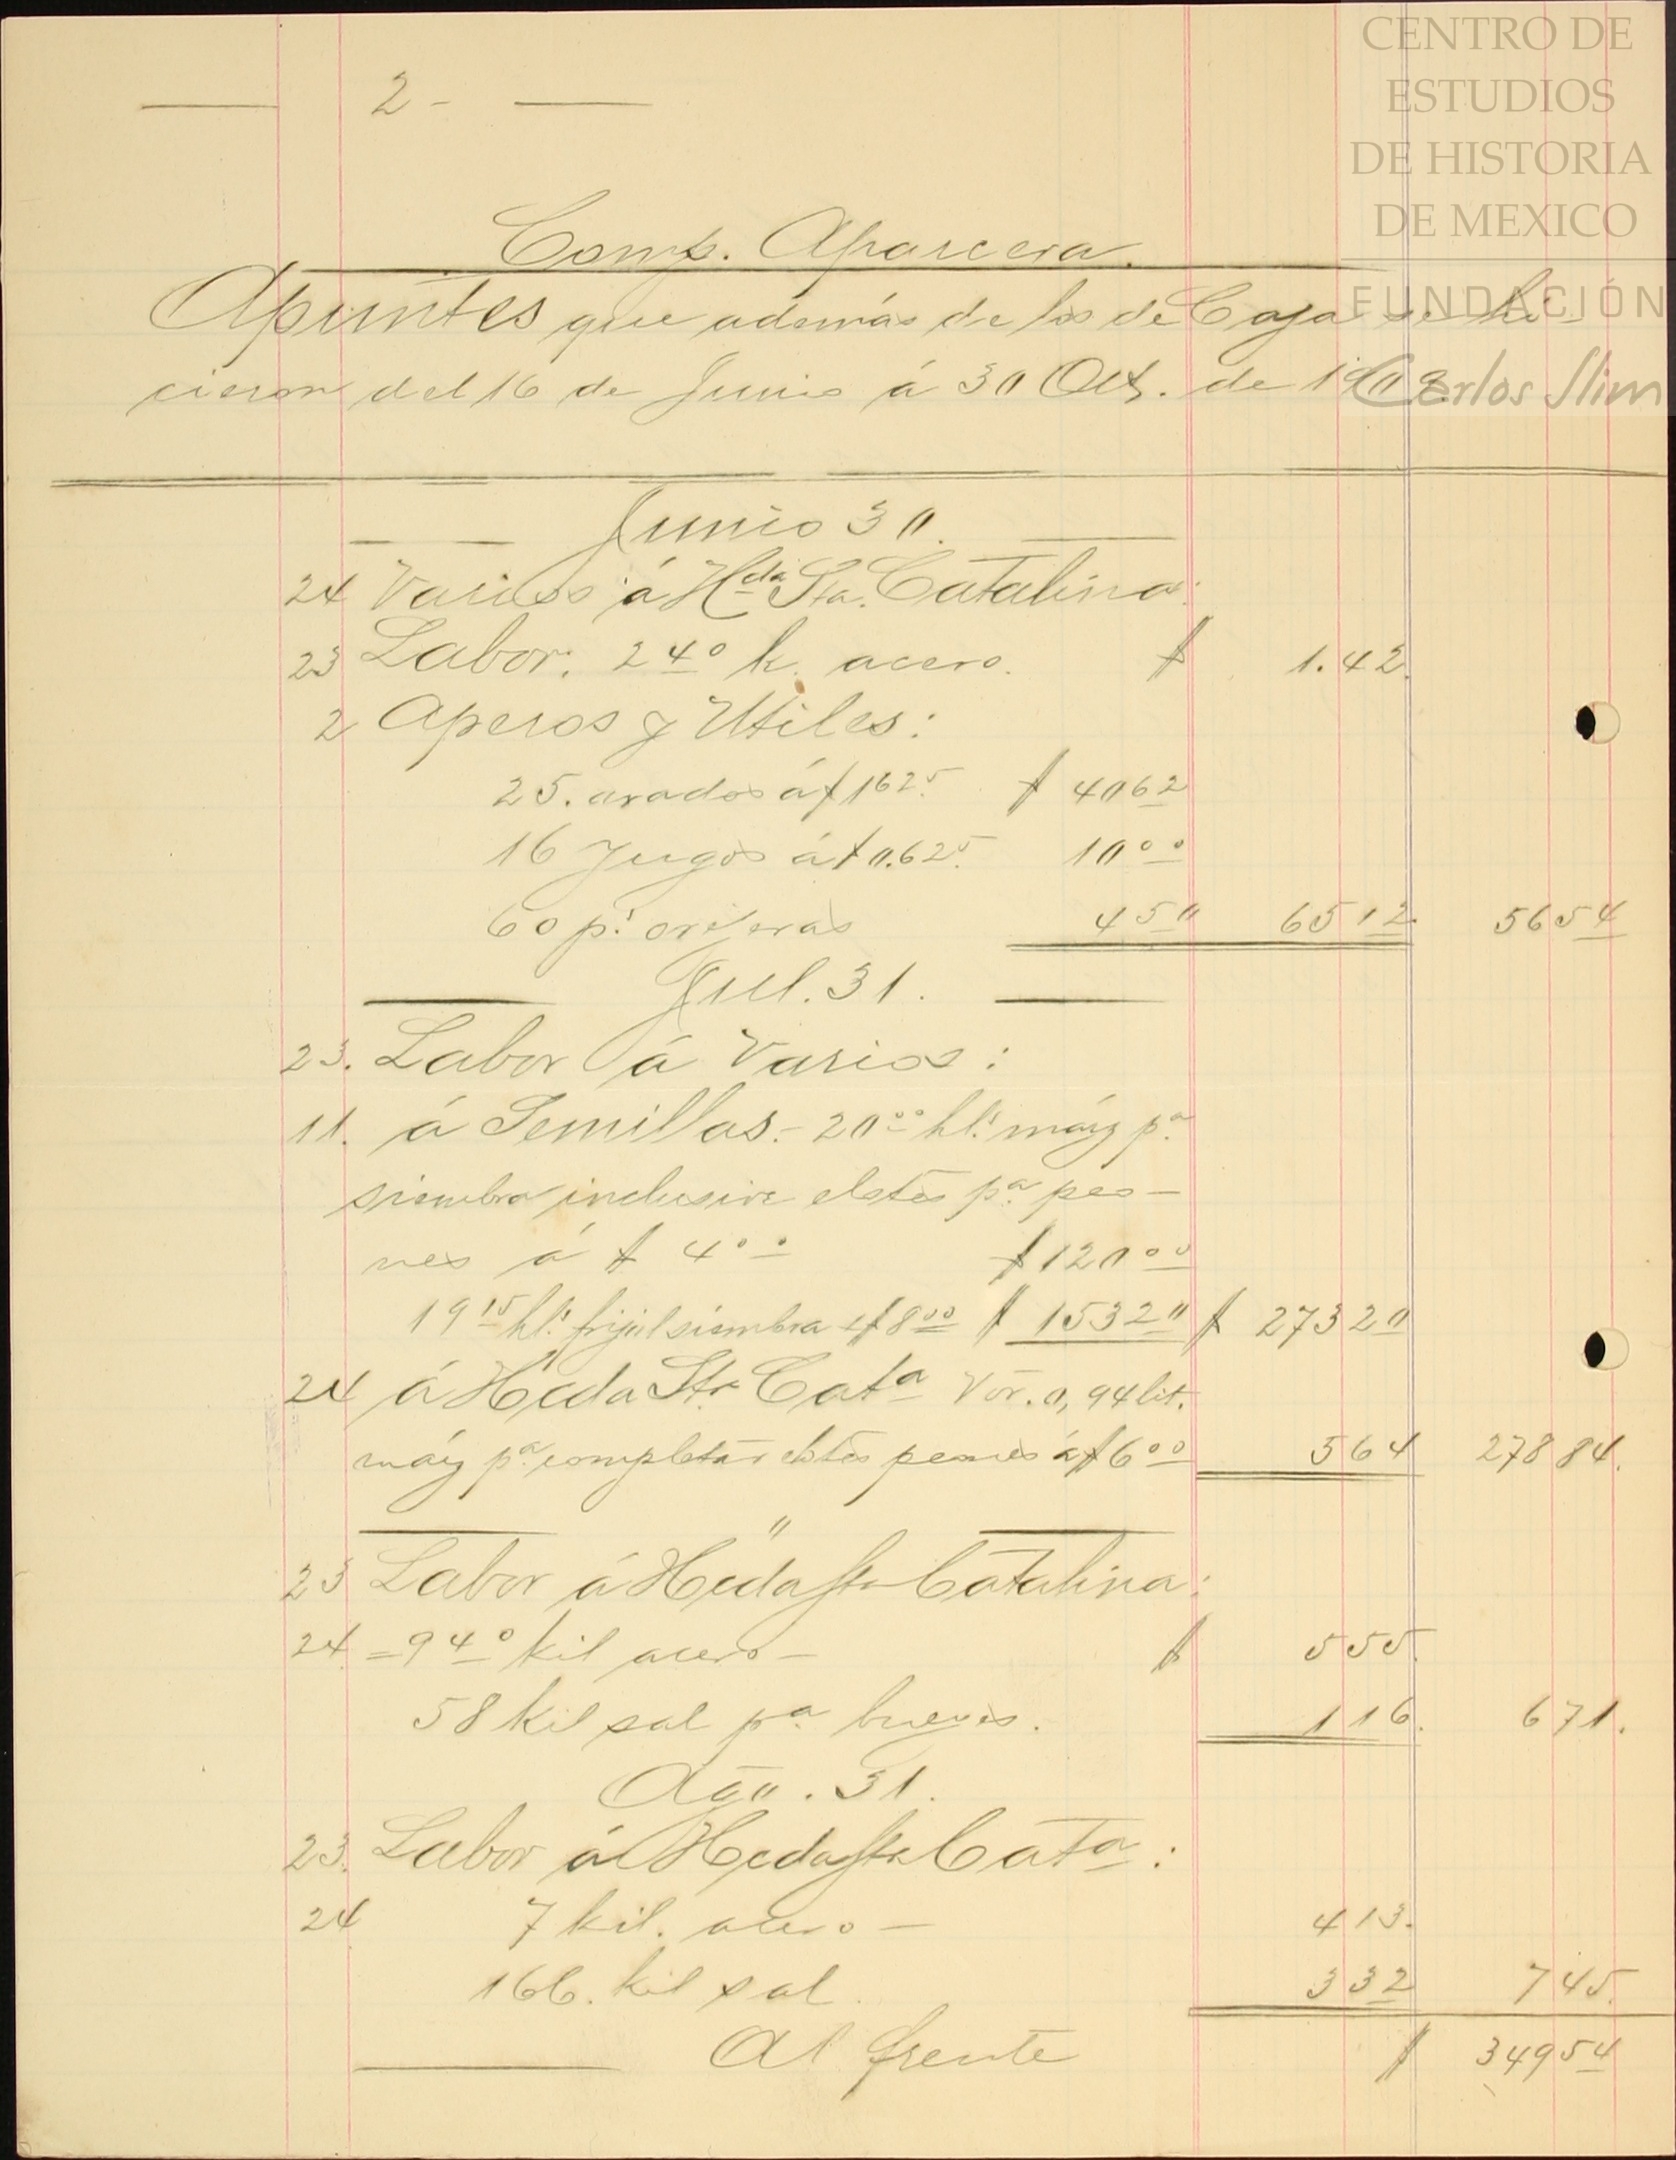 CENTRO DE
ESTUDIOS
DE HISTORIA
DE MEXICO
FUNDACIÓN
Carlos Slim
2-
Comp. Aparcera.
Apuntes que además de los de Caja se hi-
cieron del 16 de Junio á 30 Oct. de 1909.
Junio 30.
24 Varios á Hda Sta. Catalina:
23 Labor: 240 k. acero. $ 1.42.
2 Aperos y Utiles:
25. arados á $ 1625 $ 4062
16 Yugos á $ 0.625. 1000
60 ps. orejeras 450 6512 5654
Jul. 31.
23. Labor á Varios:
11. á Semillas.- 2000 hl. maíz pa.
siembra inclusive elotes pa. peo-
nes á $ 400 $ 12000
1915 hl. frijol siembra á $ 800 $ 15320 $ 27320
24 á Hcda Sta Cata Vor. 0,94 lit.
maíz pa. completar elotes peones á $ 600 564 27884.
"
23 Labor á Hcda Sta Catalina:
24 = 940 kil acero - $ 555.
58 kil sal pa bueyes. 116. 671.
Ago. 31.
23. Labor á Hcda Sta Cata:
24 7 kil. acero - 413.
166. kil sal. 332 745.
Al frente $ 34954